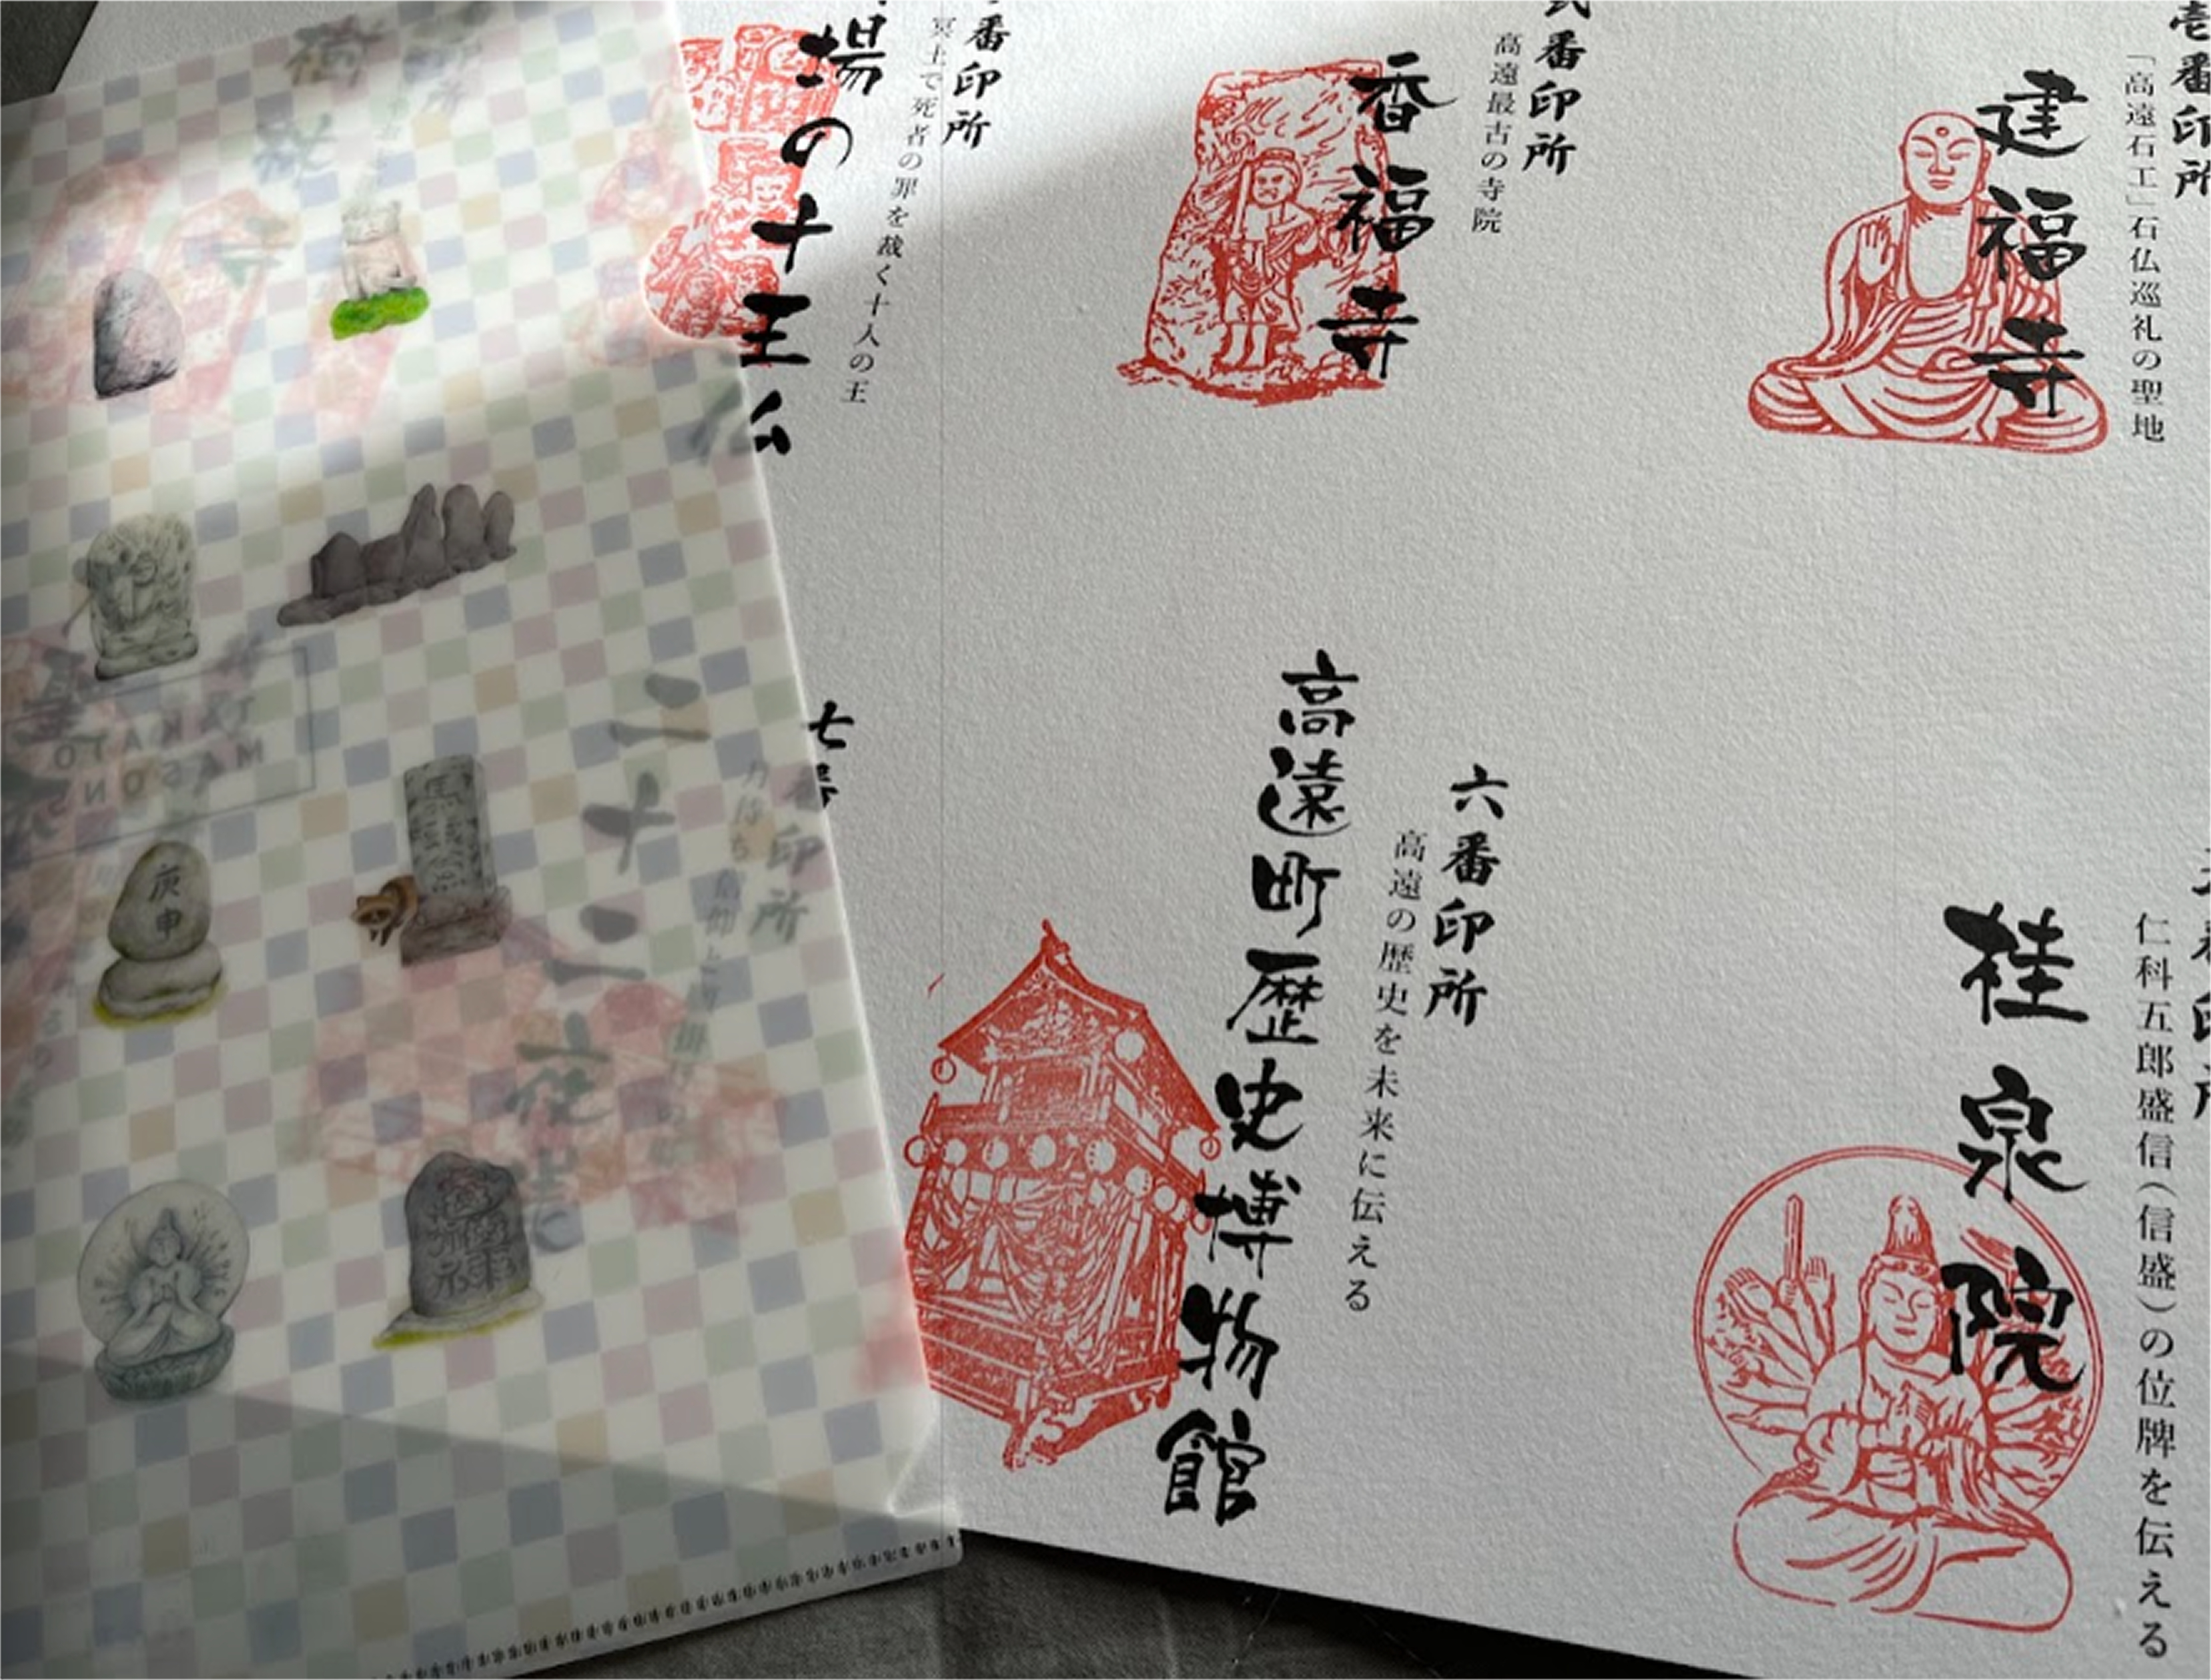 壱番印所
「高遠石工」石仏巡礼の聖地
建福寺
番印所
高遠最古の寺院
香福寺
番印所
冥土で死者の罪を裁く十人の王
場の十王仏
仁科五郎盛信(信盛)の位牌を伝える
桂泉院
六番印所
高遠の歴史を未来に伝える
高遠町歴史博物館
七番
印所
二十二夜
庚申
TAKATO
MASONS